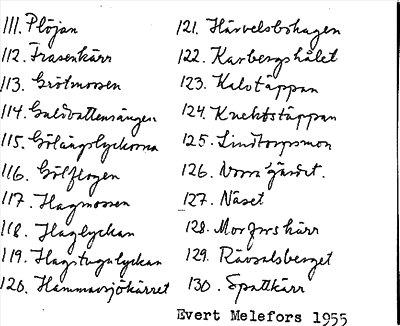 111. Plöjan
112. Frasenkärr
113. Grötmossen
114. Guldvattensängen
115. Gölängslyckorna
116. Gölflogen
117. Hagmossen
118. Haglyckan
119. Hagstugulyckan
120. Hammarsjökärret
121. Härvelsbohagen
122. Karbergshålet
123. Kalvtäppan
124. Knektstäppan
125. Lindtorpsmon
126. Norra gärdet.
127. Näset
128. kärr
129. Rävsalsberget
130. Spattkärr
Evert Melefors 1955